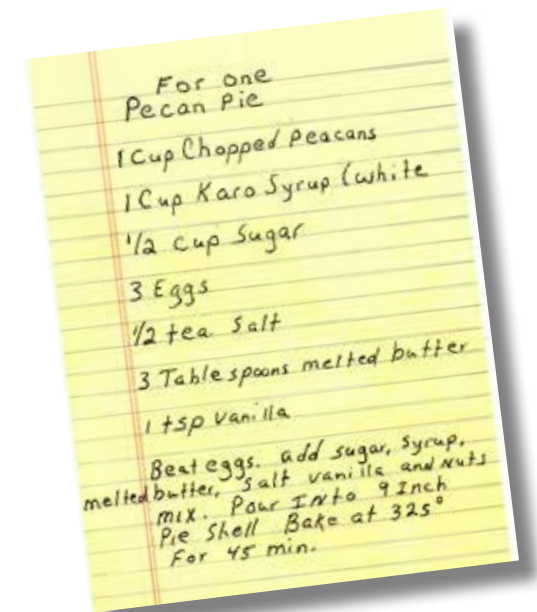 For one
Pecan Pie
1 Cup Chopped Peacans
1 Cup Karo Syrup (white
1/2 cup Sugar
3 Eggs
1/2 tea Salt
3 Tablespoons melted butter
1 tsp vanilla
Beat eggs. add sugar, syrup,
melted butter, salt vanilla and Nuts
mix. Pour INto 9 Inch
Pie Shell Bake at 325°
For 45 min.